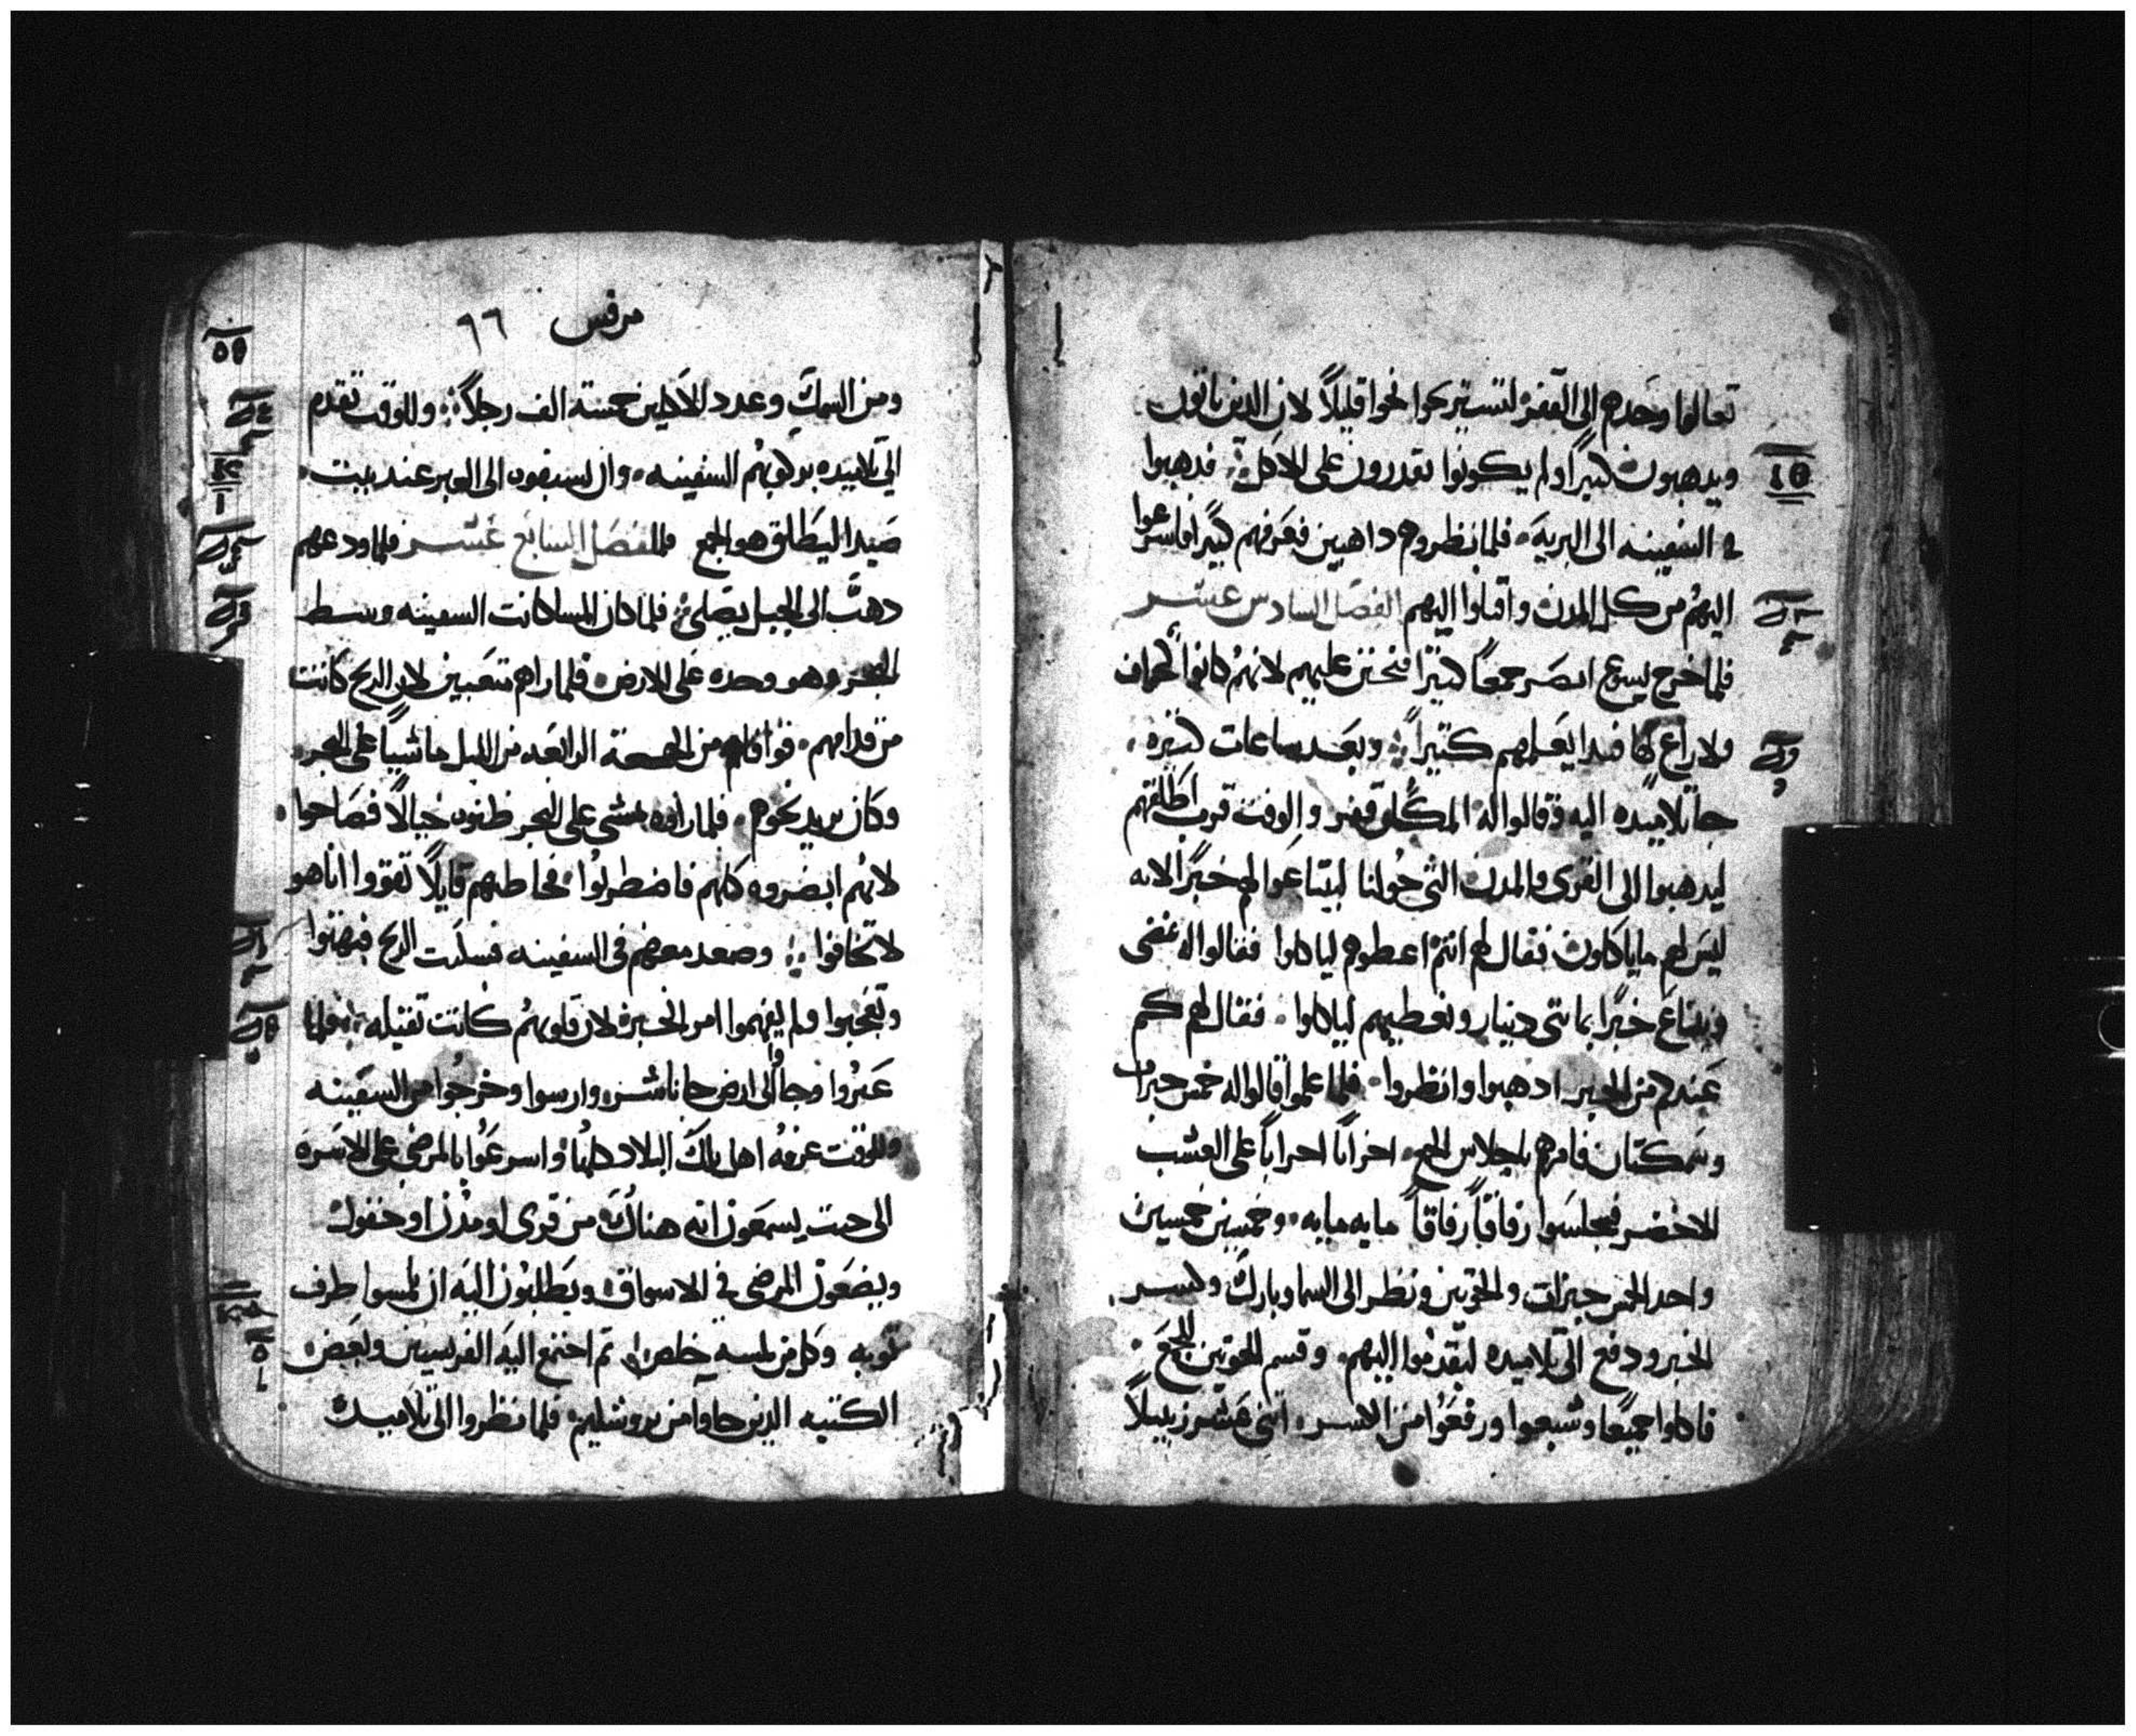 تعالوا وحدكم الى القفره لتستريحوا نحوا قليلاً لان الدين ياتون
ويدهبون كثيراً ولم يكونوا يقدرون على الاكل فدهبوا
في السفينه الى البريه فلما نظروهم داهبين فعرفهم كثيراً فاسرعوا
اليهم من كل المدن واقبلوا اليهم الفصل السادس عشر
فلما خرج يسوع ابصر جمعاً كثيراً فتحنن عليهم لانهم كانوا كخراف
ولا راع لها فبدا يعلمهم كثيراً وبعد ساعات كثيره
جا تلاميده اليه وقالوا له المكان قفر والوقت قرب اطلقهم
ليدهبوا الى القرى والمدن التي حولنا ليبتاعوا لهم خبزاً لانه
ليس لهم ما ياكلون فقال لهم انتم اعطوهم لياكلوا فقالوا له نمضى
ونبتاع خبزاً بمايتى دينار ونعطيهم لياكلوا فقال لهم كم
عندكم من الخبز ادهبوا وانظروا فلما علموا قالوا له خمس خبزات
وسمكتان فامرهم باجلاس الجمع احزاباً احزاباً على العشب
الاخضر فجلسوا رفاقاً رفاقاً مايه مايه وخمسين خمسين
واخد الخمس خبزات والحوتين ونظر الى السما وبارك وكسر
الخبز ودفع الى تلاميده ليقدموا اليهم وقسم الحوتين للجمع
فاكلوا جميعاً وشبعوا ورفعوا من الكسر اثنى عشر زنبيلاً
مرقس ٩٦
ومن السمك وعدد الاكلين خمسة الف رجلاً وللوقت تقدم
الى تلاميده بركوبهم السفينه وان يسبقوه الى العبر عند بيت
صيدا ليطلق هو الجمع الفصل السابع عشر فلما ودعهم
دهب الى الجبل يصلى فلما كان المسا كانت السفينه وسط
البحر وهو وحده على الارض فلما راهم متعبين لان الريح كانت
من قدامهم فوافاهم من الهجعة الرابعه من الليل ماشياً على البحر
وكان يريد نحوهم فلما راوه يمشى على البحر ظنوه خيالاً فصاحوا
لانهم ابصروه كلهم فاضطربوا فخاطبهم قايلاً تقووا انا هو
لا تخافوا وصعد معهم في السفينه فسكنت الريح فبهتوا
وتعجبوا ولم يفهموا امر الخبز لان قلوبهم كانت تقيله فلما
عبروا وجاوا الى ارض جاناشر وارسوا وخرجوا من السفينه
وللوقت عرفه اهل تلك البلاد كلها واسرعوا بالمرضى على الاسره
الى حيت يسمعون انه هناك من قرى او مدن او حقول
ويضعون المرضى في الاسواق ويطلبون اليه ان يلمسوا طرف
توبه وكل من لمسه خلص تم اجتمع اليه الفريسين وبعض
الكتبه الدين جاوا من يروشليم فلما نظروا الى تلاميده